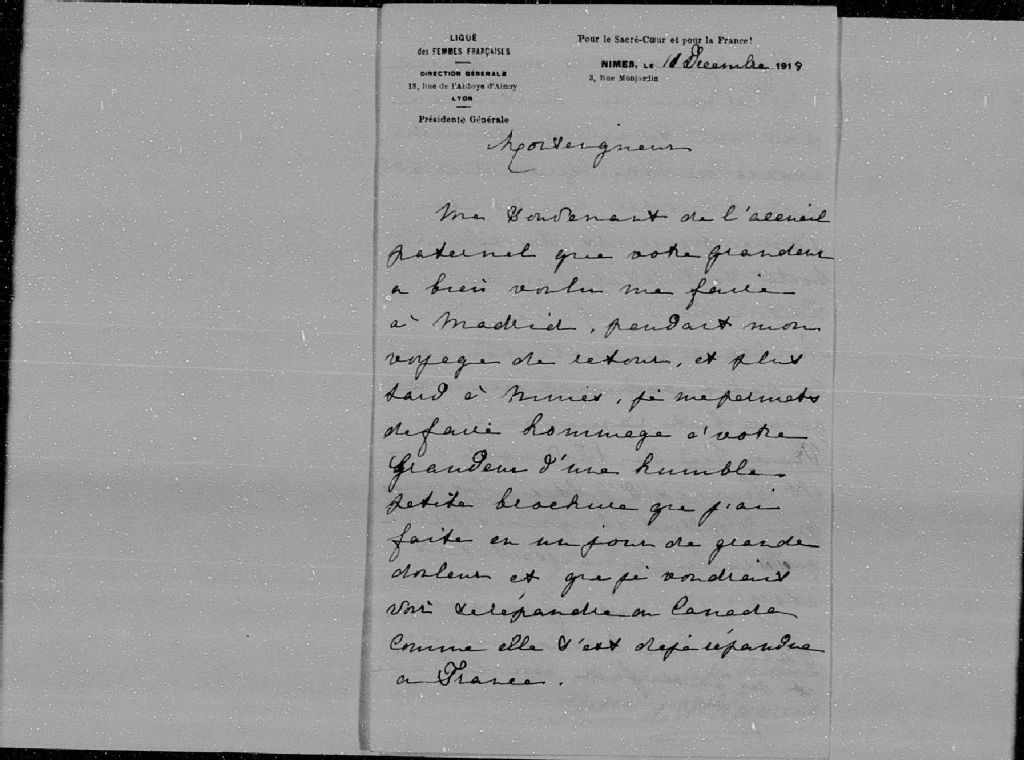 LIGUE
des FEMMES FRANÇAISES
DIRECTION GÉNÉRALE
18, Rue de l'Abbaye d'Ainay
LYON
Présidente Générale
Pour le Sacré-Cœur et pour la France!
NIMES, LE 11 Décembre 1919
3, Rue Monjardin
Monseigneur
Me souvenant de l'accueil
paternel que votre grandeur
a bien voulu me faire
à Madrid, pendant mon
voyage de retour, et plus
tard à Nimes, je me permets
de faire hommage à votre
Grandeur d'une humble
petite brochure que j'ai
faite en un jour de grande
douleur et que je voudrais
voir se répandre au Canada
comme elle s'est déjà répandue
a France.